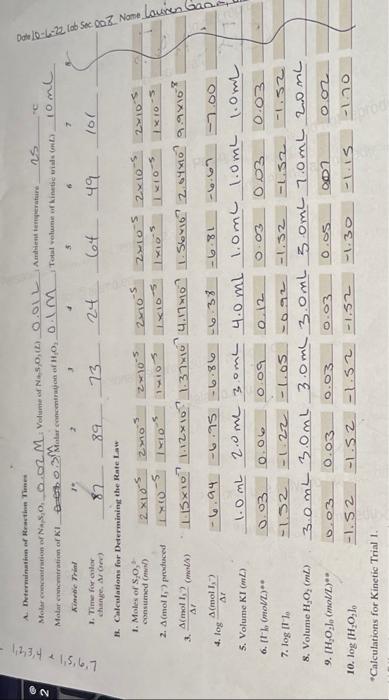 Date 10-6-22 Lab Sec. 007 Name Lauren
A. Determination of Reaction Times
Molar concentration of Na₂S₂O₃ 0.02 M Volume of Na₂S₂O₃ (L) 0.01L Ambient temperature 25 °C
Molar concentration of KI 0.3M Molar concentration of H₂O₂ 0.1M Total volume of kinetic trials (mL) 10mL
Kinetic Trial 1* 2 3 4 5 6 7 8
1. Time for color change, Δt (sec) 87 89 73 24 64 49 101
B. Calculations for Determining the Rate Law
1. Moles of S₂O₃²⁻ consumed (mol) 2x10⁻⁵ 2x10⁻⁵ 2x10⁻⁵ 2x10⁻⁵ 2x10⁻⁵ 2x10⁻⁵ 2x10⁻⁵
2. Δ(mol I₃⁻) produced 1x10⁻⁵ 1x10⁻⁵ 1x10⁻⁵ 1x10⁻⁵ 1x10⁻⁵ 1x10⁻⁵ 1x10⁻⁵
3. Δ(mol I₃⁻)/Δt (mol/s) 1.15x10⁻⁷ 1.12x10⁻⁷ 1.37x10⁻⁷ 4.17x10⁻⁷ 1.56x10⁻⁷ 2.04x10⁻⁷ 9.9x10⁻⁸
4. log Δ(mol I₃⁻)/Δt -6.94 -6.95 -6.86 -6.38 -6.81 -6.69 -7.00
5. Volume KI (mL) 1.0mL 2.0mL 3.0mL 4.0mL 1.0mL 1.0mL 1.0mL
6. [I⁻]₀ (mol/L)** 0.03 0.06 0.09 0.12 0.03 0.03 0.03
7. log [I⁻]₀ -1.52 -1.22 -1.05 -0.92 -1.52 -1.52 -1.52
8. Volume H₂O₂ (mL) 3.0mL 3.0mL 3.0mL 3.0mL 5.0mL 7.0mL 2.0mL
9. [H₂O₂]₀ (mol/L)** 0.03 0.03 0.03 0.03 0.05 0.07 0.02
10. log [H₂O₂]₀ -1.52 -1.52 -1.52 -1.52 -1.30 -1.15 -1.70
*Calculations for Kinetic Trial 1.
1,2,3,4 & 1,5,6,7
2